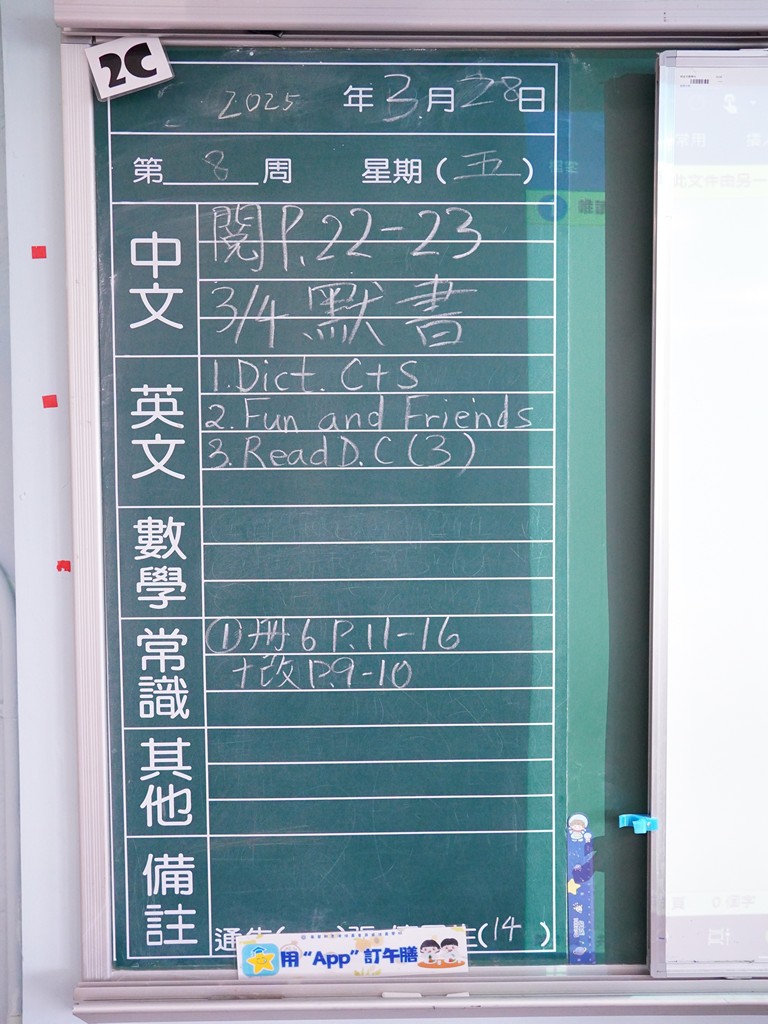 2C
2025 年 3 月 28 日
第 8 周 星期(五)
中文
閱 P.22-23
3/4 默書
英文
1. Dict. C+S
2. Fun and Friends
3. Read D.C (3)
數學
常識
① 冊 6 P.11-16
+改 P.9-10
其他
備註
通告(
(14)
用 "App" 訂午膳